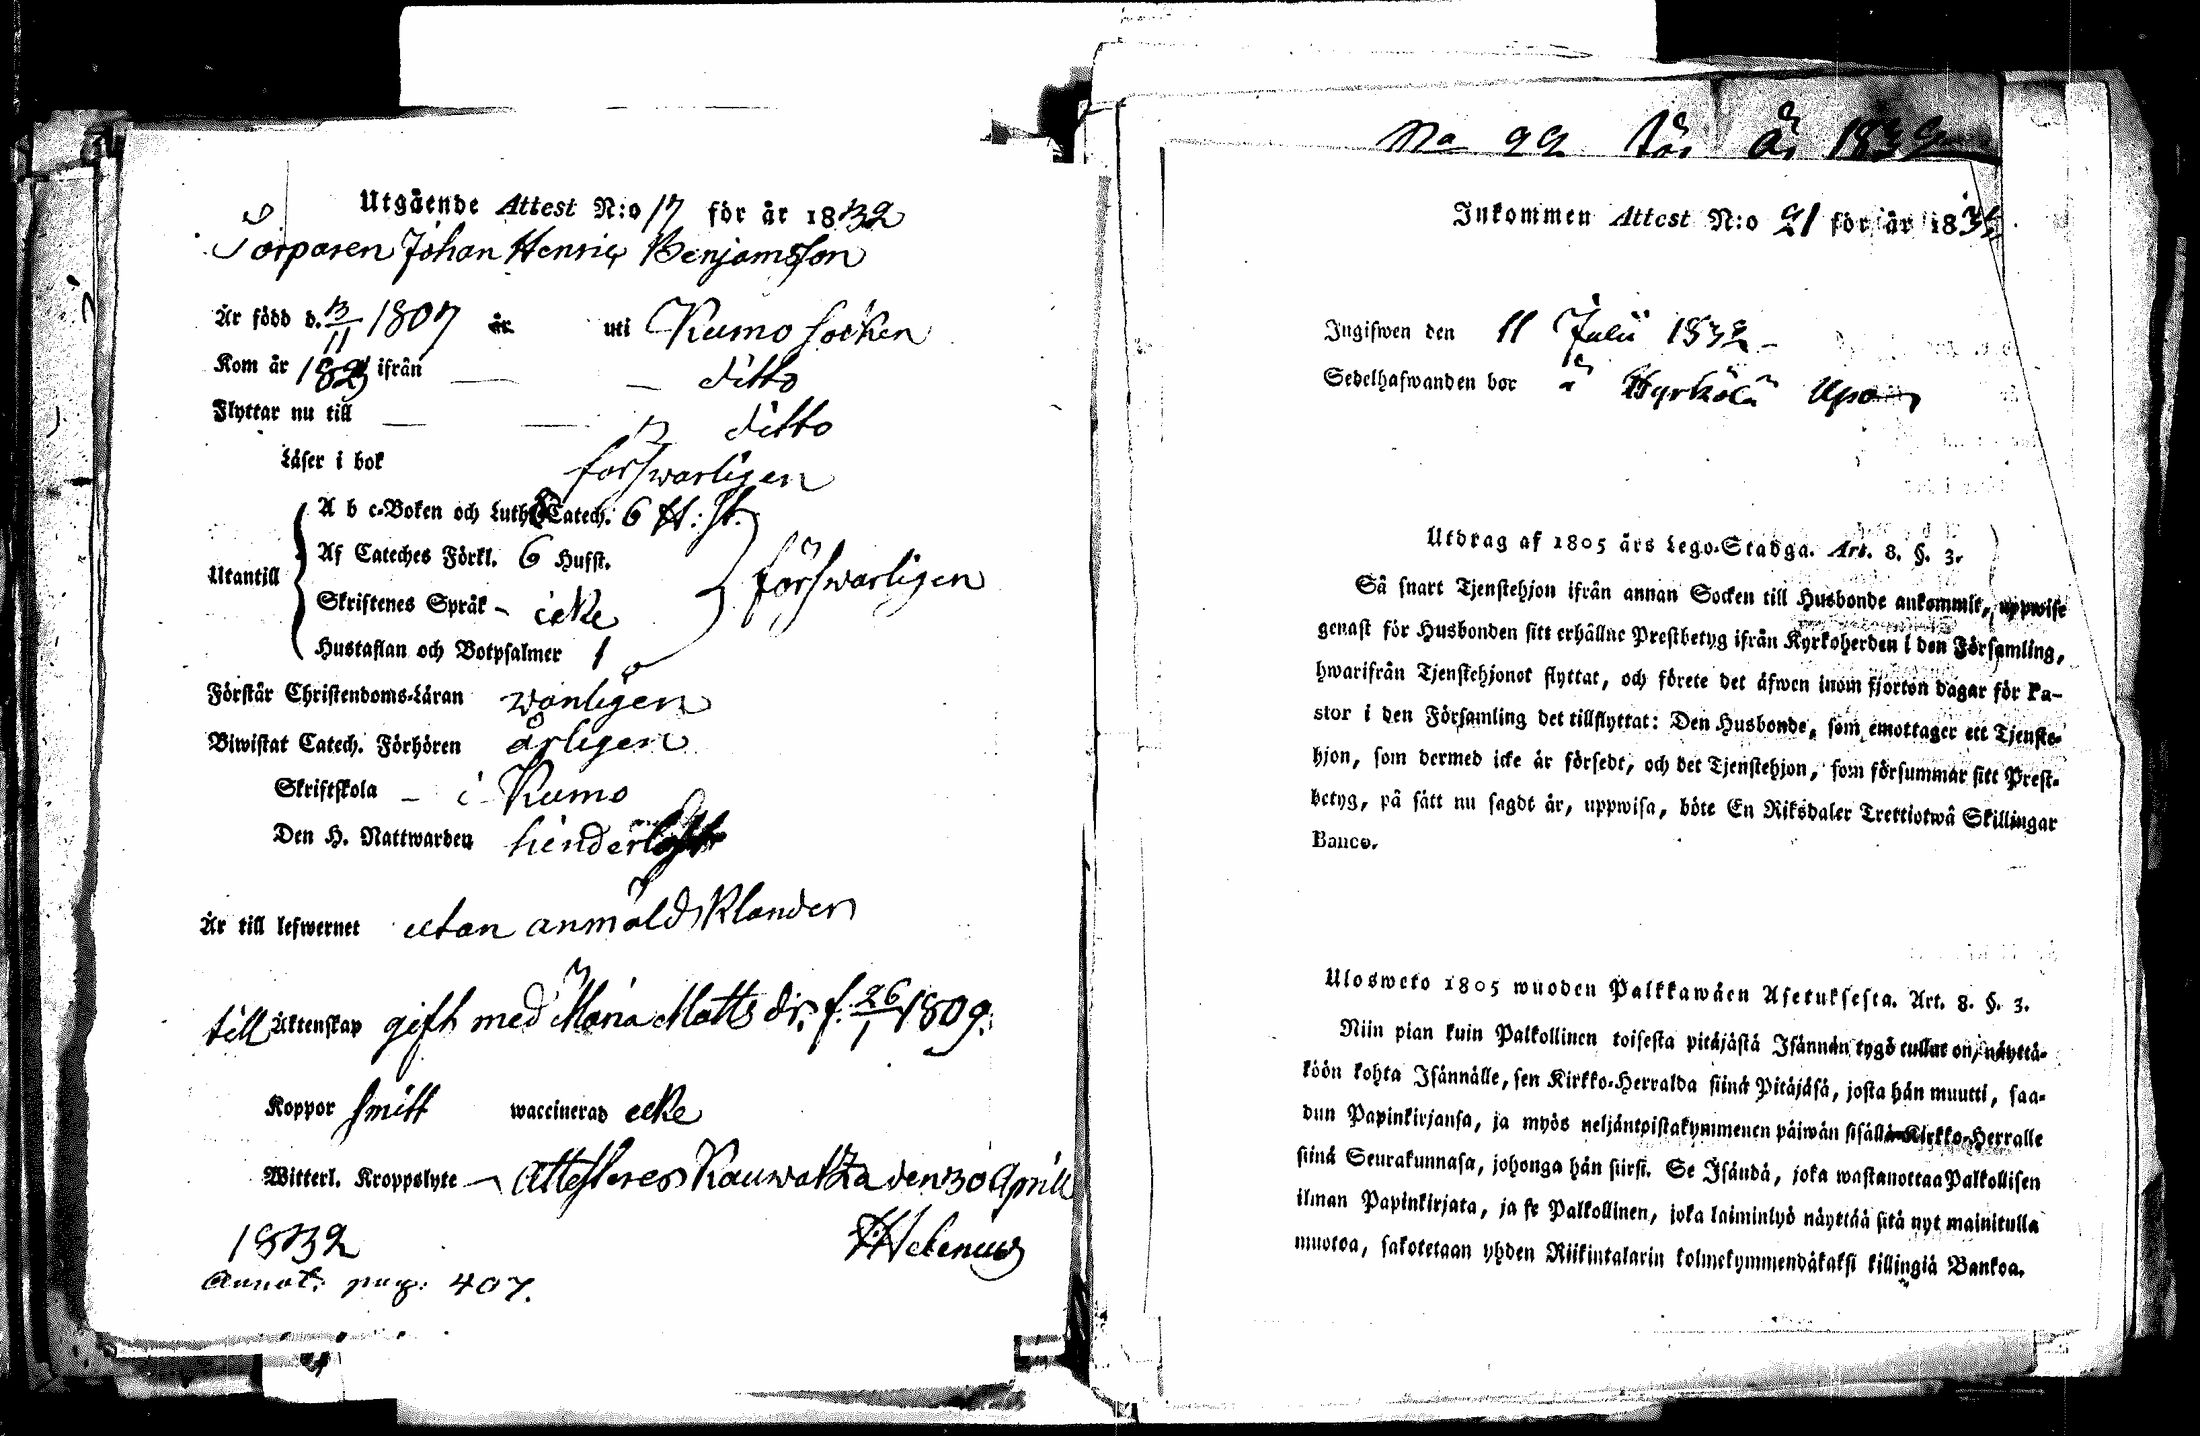 Utgående Attest N:o 17 för år 1832
Torparen Johan Henric Benjamsson
Är född d. 3/11 1807 år uti Kumo socken
Kom år 1829 ifrån — — ditto
Flyttar nu till — — ditto
Läser i bok försvarligen
Utantill
A b c-Boken och Luth. Catech. 6 H: st.
Af Cateches Förkl. 6 Hufst.
Skriftenes Språk – icke
Hustaflan och Botpsalmer 1
försvarligen
Förstår Christendoms-Läran vanligen
Biwistat Catech. Förhören årligen
Skriftskola – i Kumo
Den H. Nattwarden
Är till lefwernet utan anmäld klander
till Äktenskap gift med Maria Matts dr. f. 26/1 1809.
Koppor haft waccinerad icke
Witterl. Kroppslyte – Attesteras Kauvatza den 30 April
1832
Helenius
Annot: pag: 407.
N:o 22 för år 1832
Inkommen Attest N:o 21 för år 1832
Ingifwen den 11 Julii 1832 –
Sedelhafwanden bor å Hyrkölä
Utdrag af 1805 års Lego-Stadga. Art. 8. §. 3.
Så snart Tjenstehjon ifrån annan Socken till Husbonde ankommit, uppwise
genast för Husbonden sitt erhållne Prestbetyg ifrån Kyrkoherden i den Församling,
hwarifrån Tjenstehjonet flyttat, och förete det äfwen inom fjorton dagar för Pa-
stor i den Församling det tillflyttat: Den Husbonde, som emottager ett Tjenste-
hjon, som dermed icke är försedt, och det Tjenstehjon, som försummar sitt Prest-
betyg, på sätt nu sagdt är, uppwisa, böte En Riksdaler Trettiotwå Skillingar
Banco.
Ulosweto 1805 wuoden Palkkawäen Asetuksesta. Art. 8. §. 3.
Niin pian kuin Palkollinen toisesta pitäjästä Isännän tygö tullut on, näyttä-
köön kohta Isännälle, sen Kirkko-Herralda siinä Pitäjäsä, josta hän muutti, saa-
dun Papinkirjansa, ja myös neljäntoistakymmenen päiwän sisällä Kirkko-Herralle
siinä Seurakunnasa, johonga hän siirsi. Se Isändä, joka wastanottaa Palkollisen
ilman Papinkirjata, ja se Palkollinen, joka laiminlyö näyttää sitä nyt mainitulla
muotoa, sakotetaan yhden Riikintalarin kolmekymmendäkaksi killingiä Bankoa.